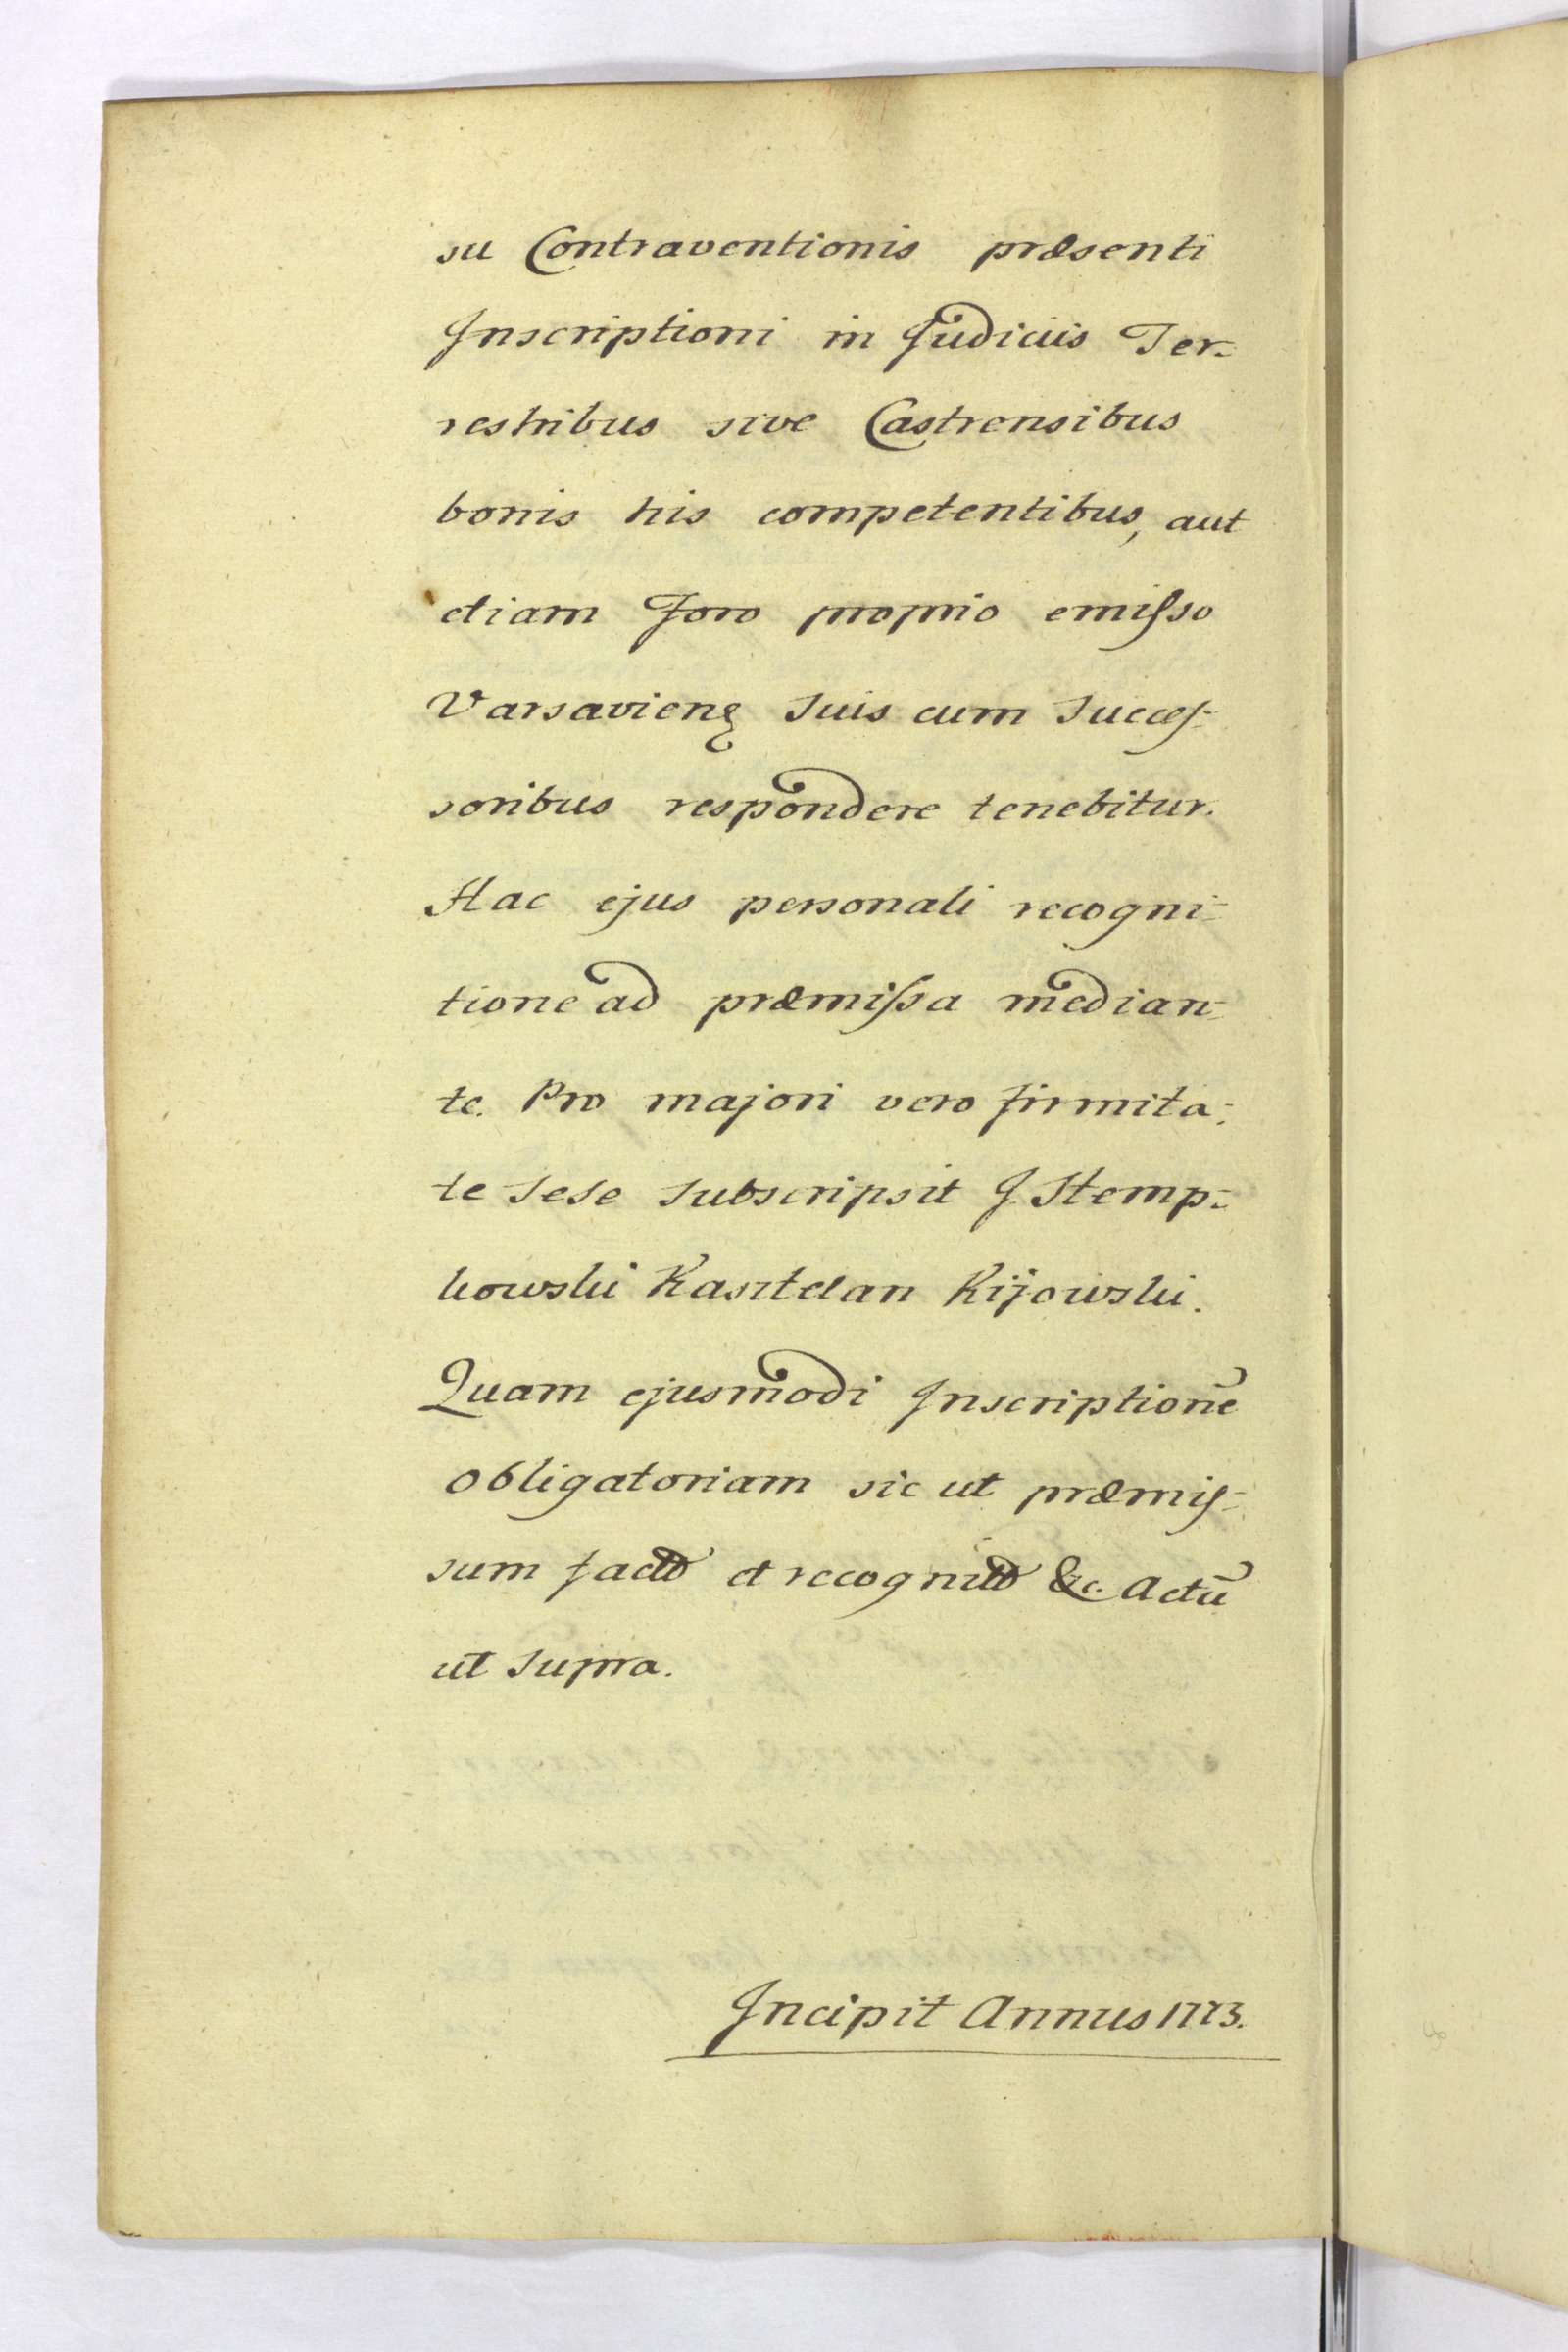 su Contraventionis præsenti
Inscriptioni in Judiciis Ter-
restribus sive Castrensibus
bonis his competentibus, aut
etiam Foro proprio emisso
Varsavienę suis cum succes-
soribus respondere tenebitur.
Hac ejus personali recogni-
tione ad præmissa median-
te. Pro majori vero firmita-
te sese subscripsit J Stemp-
kowski Kasztelan Kijowski.
Quam ejusmodi Inscriptionē
obligatoriam sic ut præmis-
sum facto et recognito &c. Actū
ut supra.
Incipit Annus 1773.